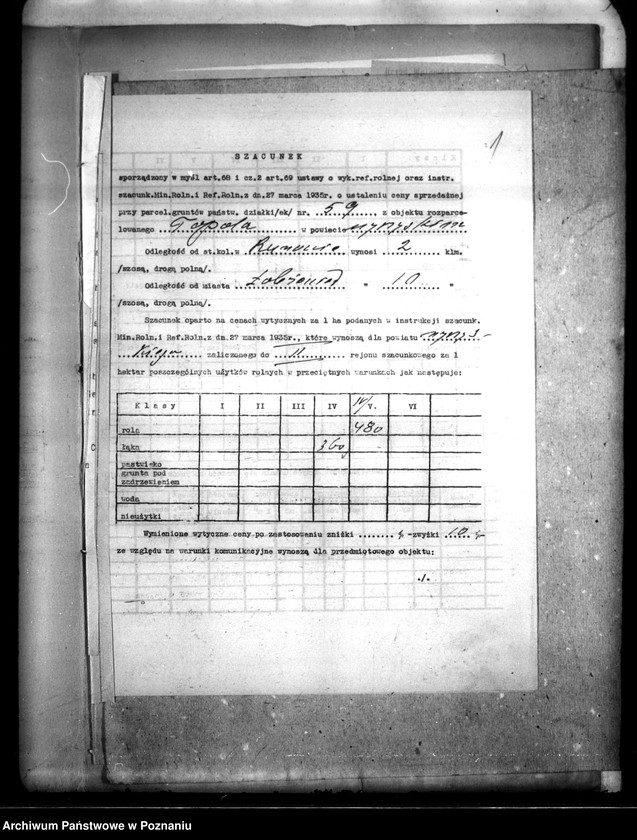 1
SZACUNEK
sporządzony w myśl art.68 i cz.2 art.69 ustawy o wyk.ref.rolnej oraz instr.
szacunk.Min.Roln.i Ref.Roln.z dn.27 marca 1935r. o ustaleniu ceny sprzedażnej
przy parcel.gruntów państw. działki/ek/ nr. 59, z objektu rozparce-
lowanego Topola w powiecie wyrzyskim
Odległość od st.kol.w Runowie wynosi 2 klm.
/szosą, drogą polną/.
Odległość od miasta Łobżenica " 10 "
/szosą, drogą polną/.
Szacunek oparto na cenach wytycznych za 1 ha podanych w instrukcji szacunk.
Min.Roln.i Ref.Roln.z dn.27 marca 1935r., które wynoszą dla powiatu wyrzys-
kiego zaliczonego do II rejonu szacunkowego za 1
hektar poszczególnych użytków rolnych w przeciętnych warunkach jak następuje:
Klasy I II III IV IV/V. VI
rola 480
łąka 360
pastwisko
grunta pod
zadrzewieniem
woda
nieużytki
Wymienione wytyczne ceny po zastosowaniu zniżki ........ % -zwyżki 10 %
ze względu na warunki komunikacyjne wynoszą dla przedmiotowego objektu:
./.
Archiwum Państwowe w Poznaniu